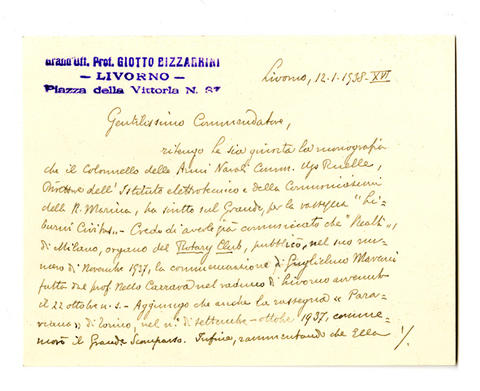 Grand'Uff. Prof. GIOTTO BIZZARRINI
— LIVORNO —
Piazza della Vittoria N. 37
Livorno, 12.1.1938-XVI
Gentilissimo Commendatore,
ritengo le sia giunta la monografia
che il Colonnello delle Armi Navali Comm. Ugo Ruelle,
Direttore dell'Istituto elettrotecnico e delle Comunicazioni
della R. Marina, ha scritto sul Grande, per la rassegna "Li-
burni Civitas".- Credo di averle già comunicato che "Realtà",
di Milano, organo del Rotary Club, pubblicò, nel suo nu-
mero di Novembre 1937, la commemorazione di Guglielmo Marconi
fatta dal prof Nello Carrara nel raduno di Livorno avvenuto
il 22 ottobre u. s. - Aggiungo che anche la rassegna "Para-
viana" di Torino, nel n. di settembre-ottobre 1937, comme-
morò il Grande Scomparso. Infine, rammentando che Ella ./.